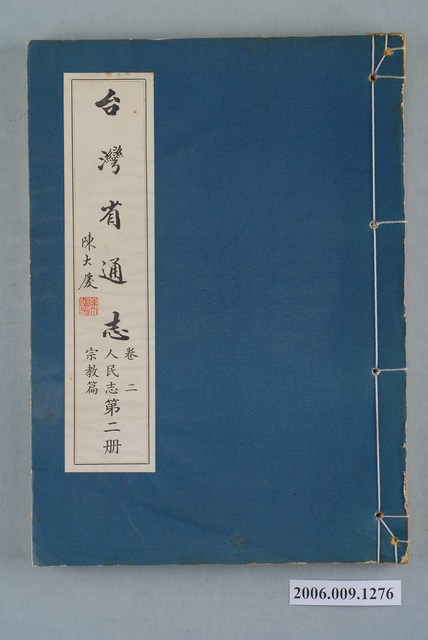 台灣省通志
卷二
人民志
宗教篇
第二册
陳大慶
2006.009.1276